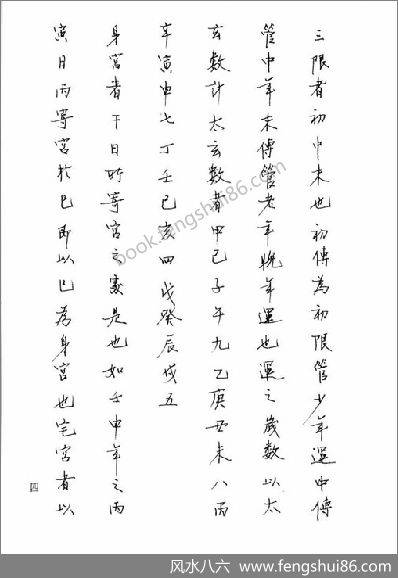 三限者初中末也初傳為初限管少年運中傳
管中年末傳管老年晚年運也運之歲數以太
玄數計太玄數者甲己子午九乙庚丑未八丙
辛寅申七丁壬卯酉六戊癸辰戌五
身宮者干日所寄宮之處是也如壬申年之丙
寅日丙寄宮於巳即以巳為身宮也宅宮者以
四
book.fengshui86.com
风水八六 www.fengshui86.com